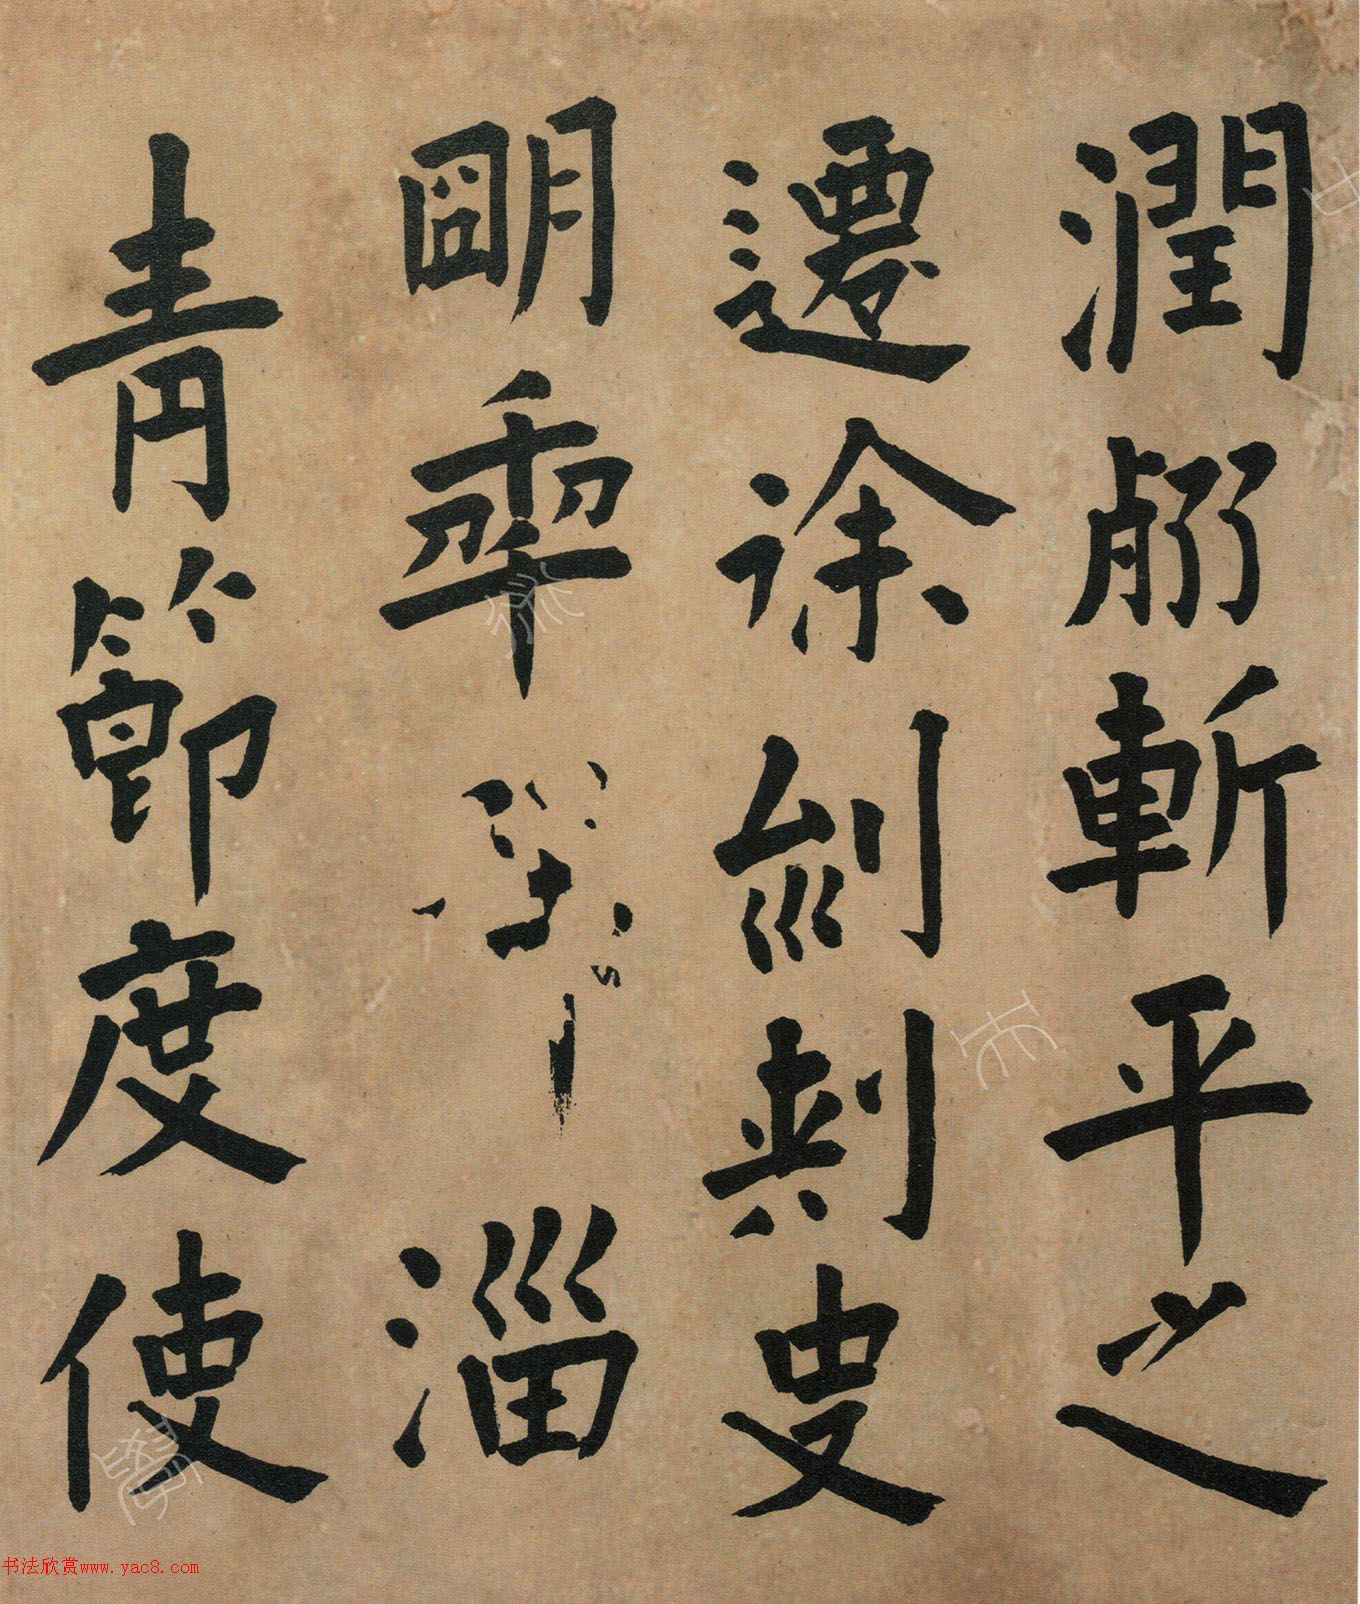 潤州斬平之
遷徐州刺史
明年淄
青節度使
书法欣赏www.yac8.com